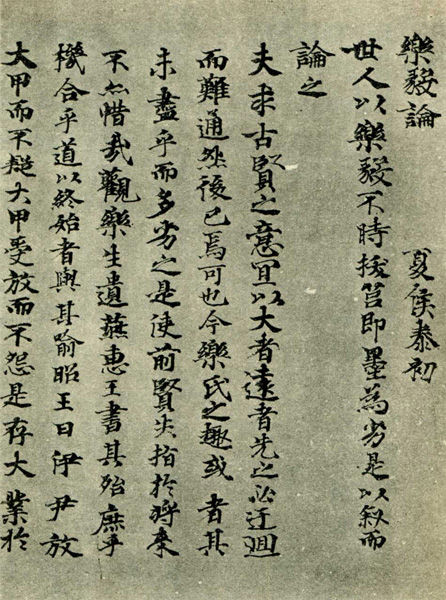 樂毅論　　　夏侯泰初
世人以樂毅不時拔筥即墨為劣是以叙而
論之
夫求古賢之意宜以大者遠者先之必迂迴
而難通然後已焉可也今樂氏之趣或者其
未盡乎而多劣之是使前賢失指於將来
不亦惜哉觀樂生遺燕惠王書其殆庶乎
機合乎道以終始者與其喻昭王曰伊尹放
大甲而不疑大甲受放而不怨是存大業於